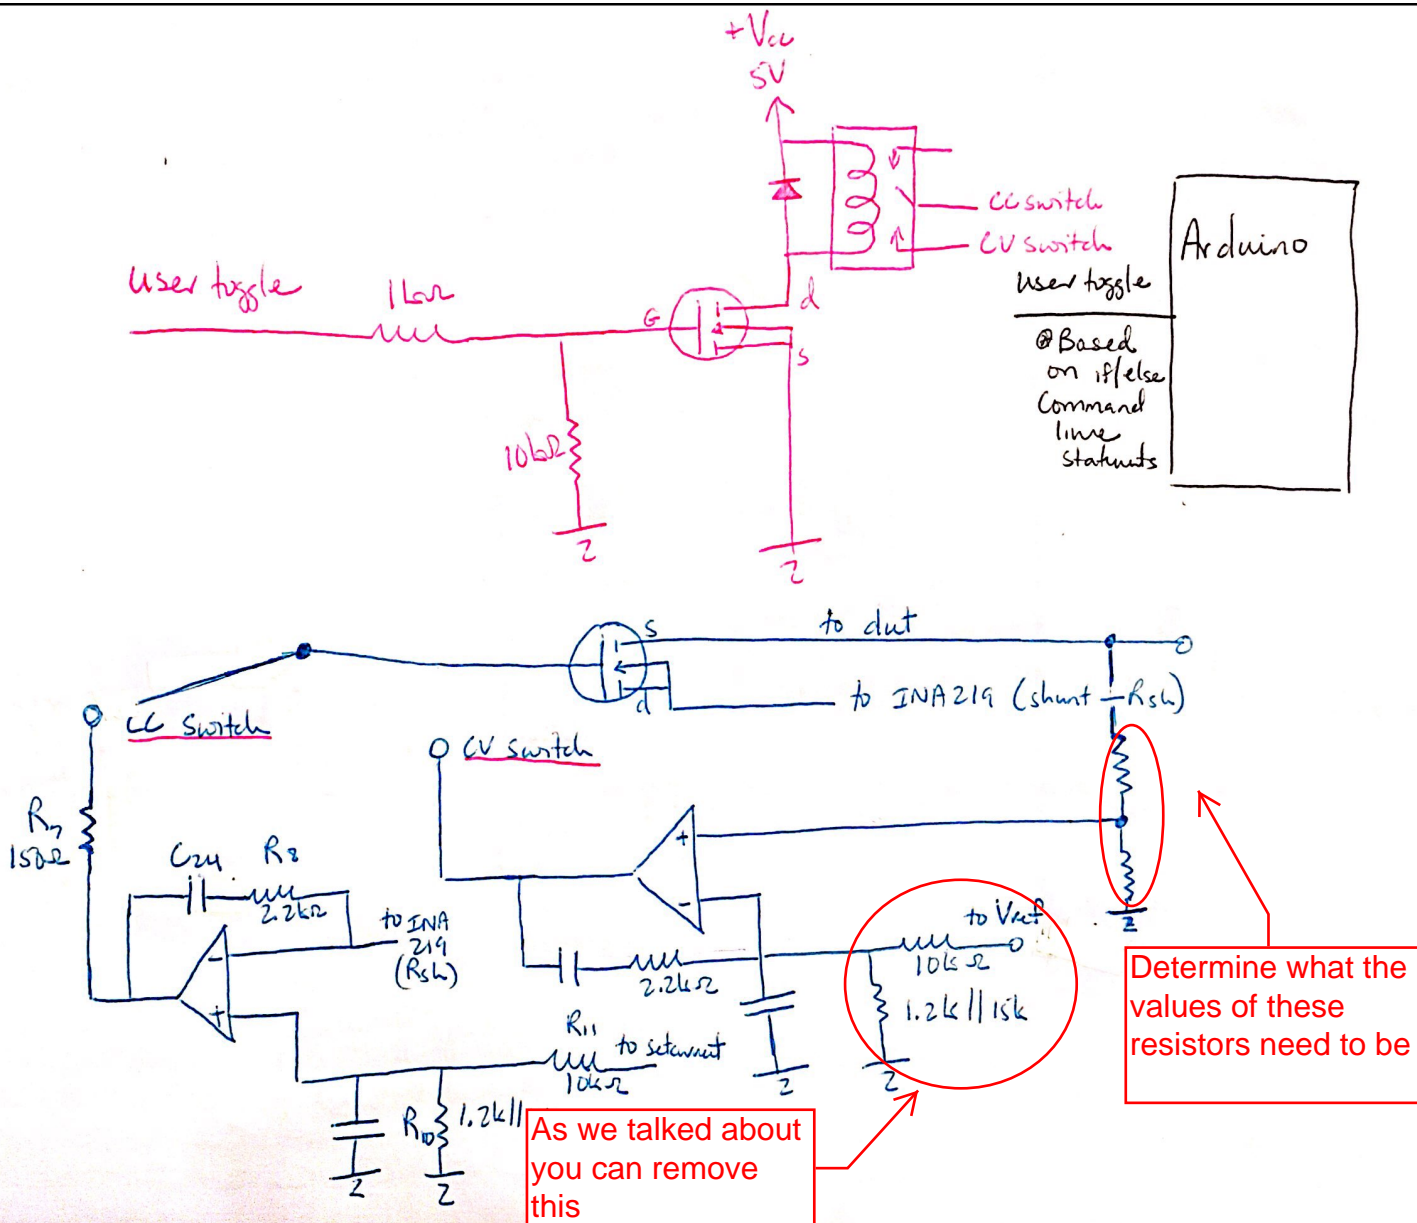 +Vcc
5V
CC switch
CV switch
Arduino
user toggle
1kΩ
G
d
s
10kΩ
user toggle
Based
on if/else
Command
line
statments
s
d
to dut
to INA219 (shunt - Rsh)
CC Switch
CV switch
R7
150Ω
C24
R8
2.2kΩ
to INA
219
(Rsh)
+
-
-
+
2.2kΩ
to Vref
10kΩ
1.2k//15k
R11
10kΩ
to setcurrent
R10
1.2k//
Determine what the
values of these
resistors need to be
As we talked about
you can remove
this